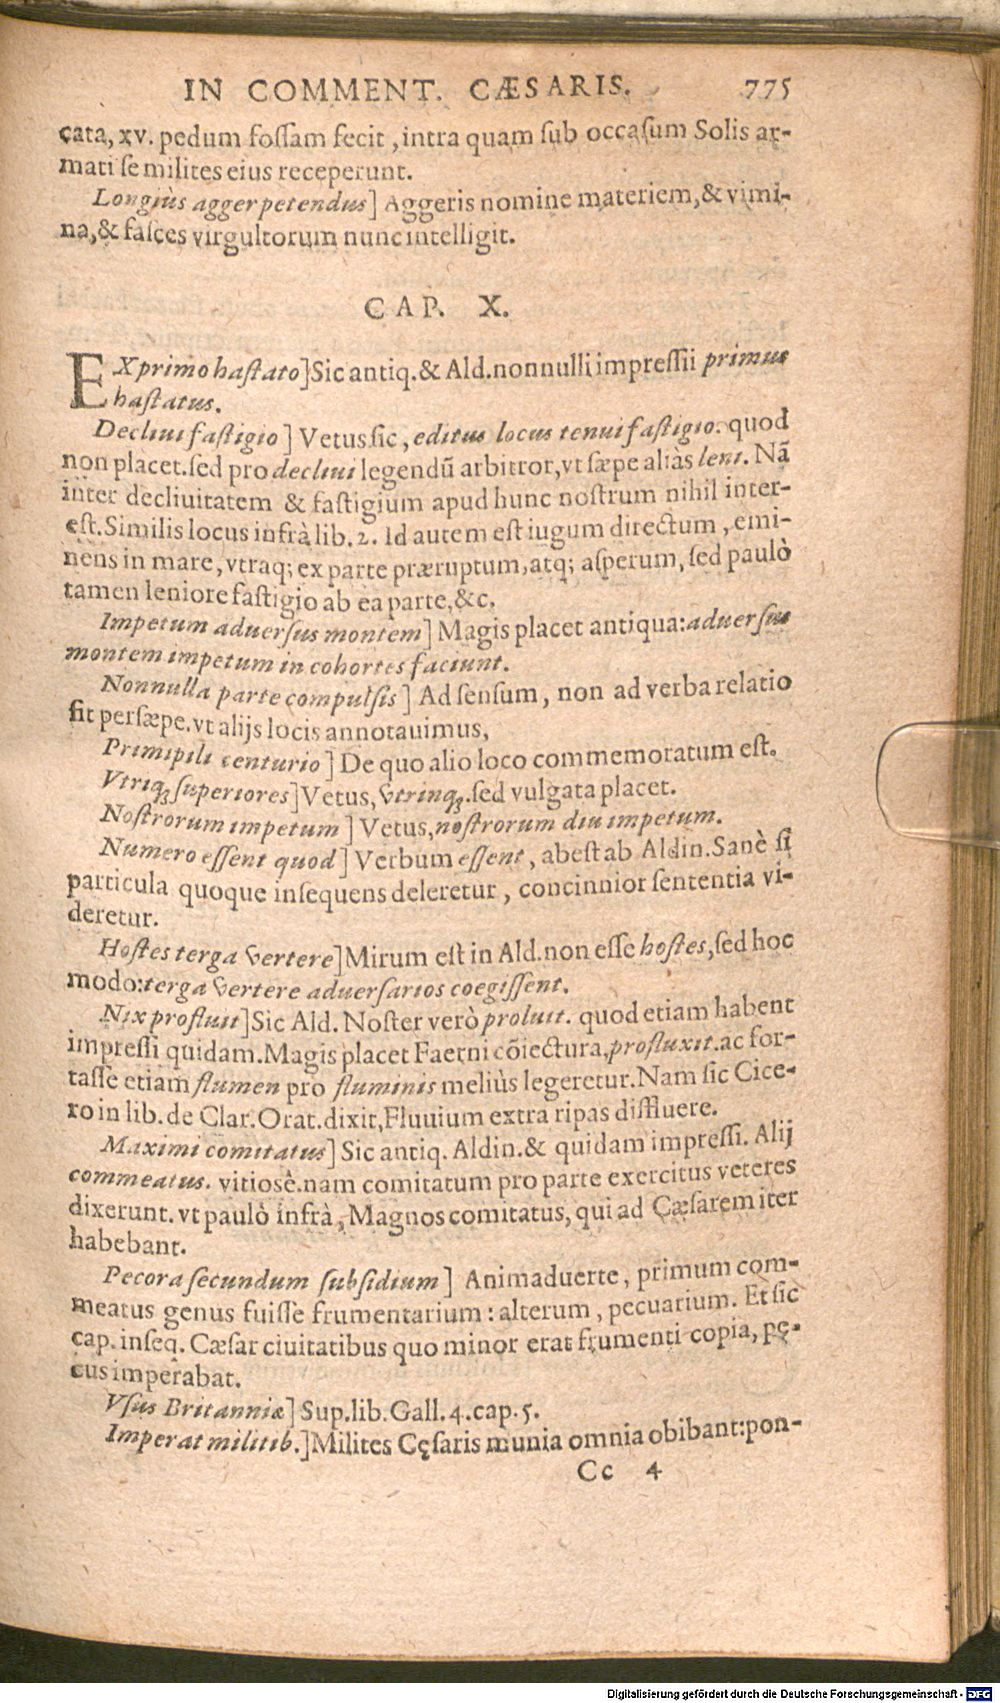 IN COMMENT. CÆSARIS. 775
cata, xv. pedum fossam fecit, intra quam sub occasum Solis ar-
mati se milites eius receperunt.
Longiùs agger petendus] Aggeris nomine materiem, & vimi-
na, & fasces virgultorum nunc intelligit.
CAP. X.
EX primo hastato] Sic antiq. & Ald. nonnulli impressii primus
hastatus.
Decliui fastigio] Vetus sic, editus locus tenui fastigio. quod
non placet. sed pro decliui legendũ arbitror, vt sæpe aliàs leni. Nã
inter decliuitatem & fastigium apud hunc nostrum nihil inter-
est. Similis locus infrà lib. 2. Id autem est iugum directum, emi-
nens in mare, vtraq; ex parte præruptum, atq; asperum, sed paulò
tamen leniore fastigio ab ea parte, &c.
Impetum aduersus montem] Magis placet antiqua: aduersus
montem impetum in cohortes faciunt.
Nonnulla parte compulsis] Ad sensum, non ad verba relatio
fit persæpe. vt alijs locis annotauimus,
Primipili centurio] De quo alio loco commemoratum est.
Vtriq; superiores] Vetus, vtrinq;. sed vulgata placet.
Nostrorum impetum] Vetus, nostrorum diu impetum.
Numero essent quod] Verbum essent, abest ab Aldin. Sanè si
particula quoque insequens deleretur, concinnior sententia vi-
deretur.
Hostes terga vertere] Mirum est in Ald. non esse hostes, sed hoc
modo: terga vertere aduersarios coegissent.
Nix profluit] Sic Ald. Noster verò proluit. quod etiam habent
impressi quidam. Magis placet Faerni cõiectura, profluxit. ac for-
tasse etiam flumen pro fluminis meliùs legeretur. Nam sic Cice-
ro in lib. de Clar. Orat. dixit, Fluuium extra ripas diffluere.
Maximi comitatus] Sic antiq. Aldin. & quidam impressi. Alij
commeatus. vitiosè. nam comitatum pro parte exercitus veteres
dixerunt. vt paulò infrà, Magnos comitatus, qui ad Cæsarem iter
habebant.
Pecora secundum subsidium] Animaduerte, primum com-
meatus genus fuisse frumentarium: alterum, pecuarium. Et sic
cap. inseq. Cæsar ciuitatibus quo minor erat frumenti copia, pe-
cus imperabat.
Vsus Britanniæ] Sup. lib. Gall. 4. cap. 5.
Imperat militib.] Milites Cęsaris munia omnia obibant: pon-
Cc 4
Digitalisierung gefördert durch die Deutsche Forschungsgemeinschaft - DFG